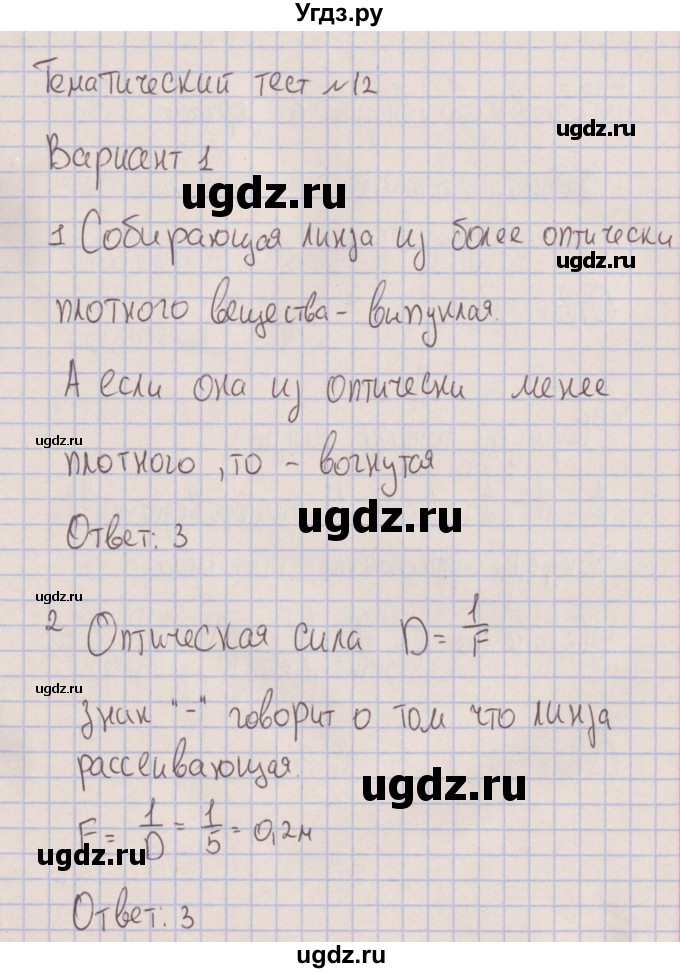 Угдз.ру
Тематический тест №12
ugdz.ru
Вариант 1
ugdz.ru
1 Собирающая линза из более оптически
ugdz.ru
плотного вещества - випуклая.
А если она из оптически менее
ugdz.ru
плотного, то - вогнутая
ugdz.ru
Ответ: 3
ugdz.ru
2 Оптическая сила D = 1/F
ugdz.ru
знак "-" говорит о том что линза
рассеивающая.
ugdz.ru
F = 1/D = 1/5 = 0,2м
ugdz.ru
Ответ: 3
ugdz.ru